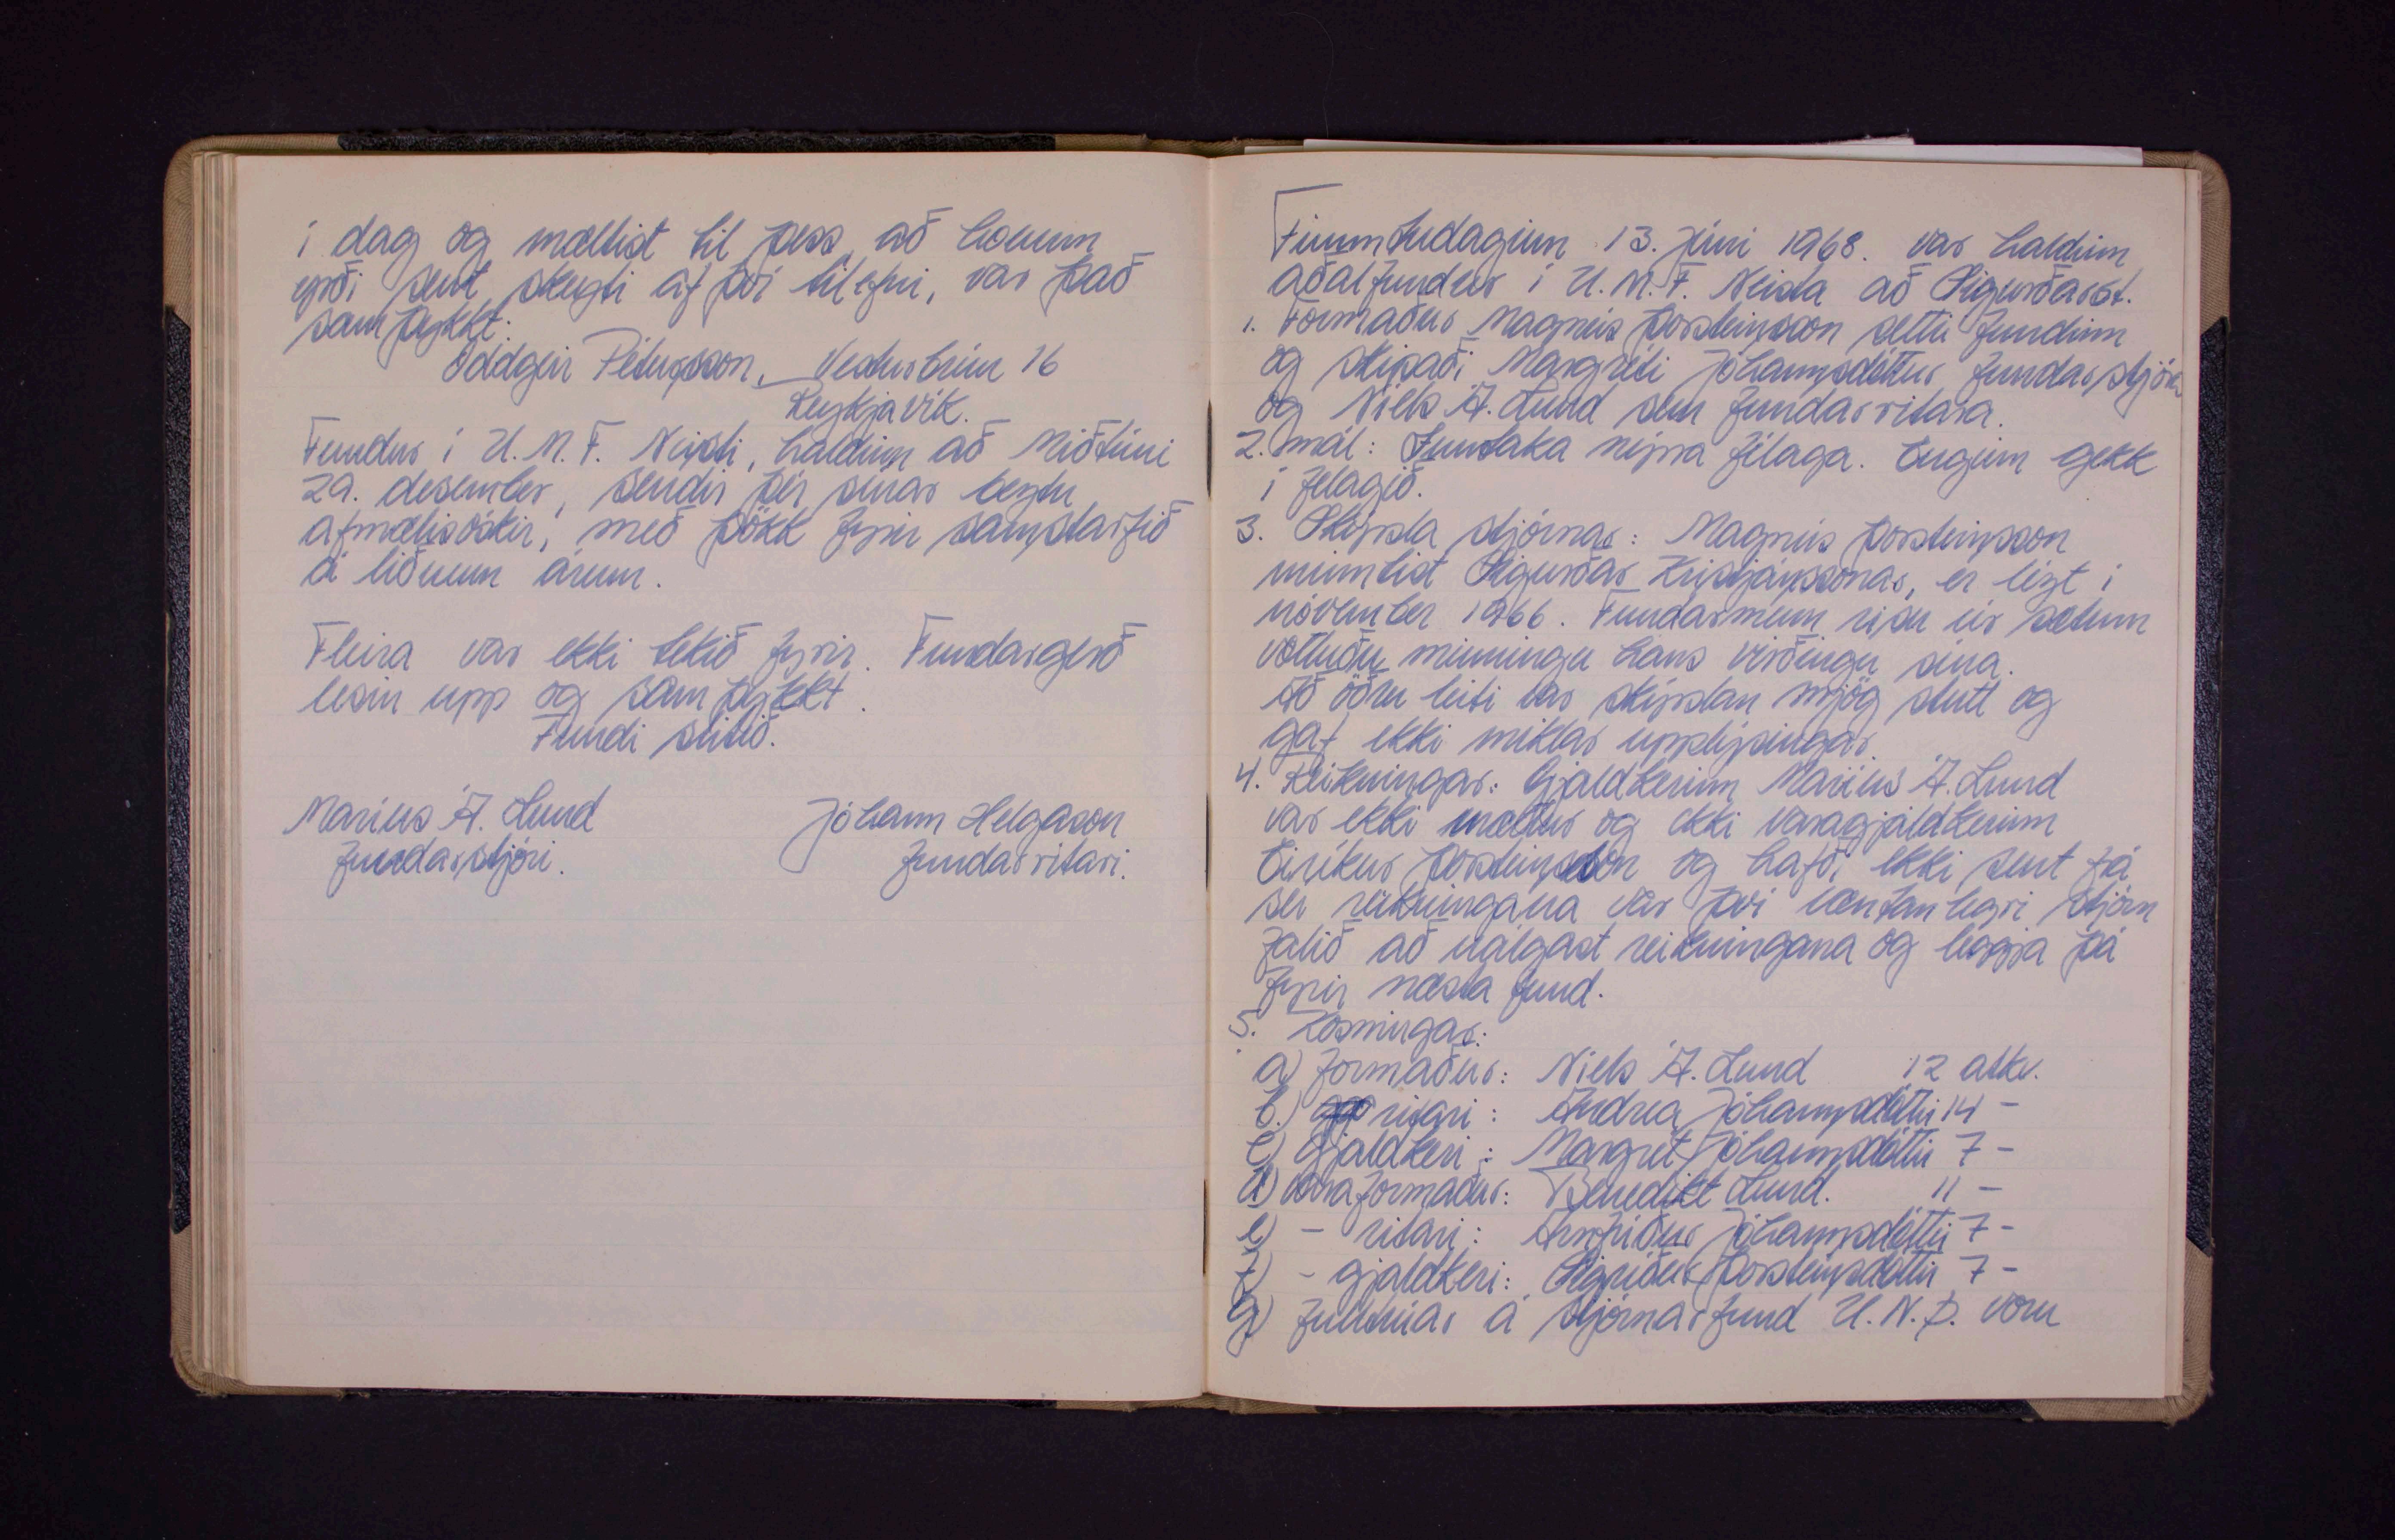 í dag og mæltist til þess að honum
yrði sent skeyti af því tilefni, var það
samþykkt.
Oddgeir Pétursson, Vesturbrún 16
Reykjavík.
Fundur í U.M.F. Neisti, haldinn að Miðtúni
29. desember, sendir þér sínar beztu
afmælisóskir, með þökk fyrir samstarfið
á liðnum árum.
Fleira var ekki tekið fyrir. Fundargerð
lesin upp og samþykkt.
Fundi slitið.
Maríus Á. Lund
fundarstjóri.
Jóhann Helgason
fundarritari.
Fimmtudaginn 13. júní 1968. var haldinn
aðalfundur í U.M.F. Neista að Sigurðarst.
1. Formaður Magnús Þorsteinsson setti fundinn
og skipaði Margréti Jóhannsdóttur fundarstjóra
og Níels Á. Lund sem fundarritara.
2. mál: Inntaka nýrra félaga. Enginn gekk
í félagið.
3. Skýrsla stjórnar: Magnús Þorsteinsson
minntist Sigurðar Kristjánssonar, er lézt í
nóvember 1966. Fundarmenn risu úr sætum
vottuðu minningu hans virðingu sína.
Að öðru leiti var skýrslan mjög stutt og
gaf ekki miklar upplýsingar.
4. Reikningar: Gjaldkerinn Maríus Á. Lund
var ekki mættur og ekki varagjaldkerinn
Eiríkur Þorsteinsson og hafði ekki sent frá
sér reikningana var því væntanlegri stjórn
falið að nálgast reikningana og leggja þá
fyrir næsta fund.
5. Kosningar:
a) formaður: Níels Á. Lund 12 atkv.
b.) ritari: Andrea Jóhannsdóttir 14 -
c) Gjaldkeri: Margrét Jóhannsdóttir 7 -
d) varaformaður: Benedikt Lund. 11 -
e) - ritari: Arnþrúður Jóhannsdóttir 7 -
f) - gjaldkeri: Sigríður Þorsteinsdóttir 7 -
g) fulltrúar á stjórnarfund U.N.Þ. voru